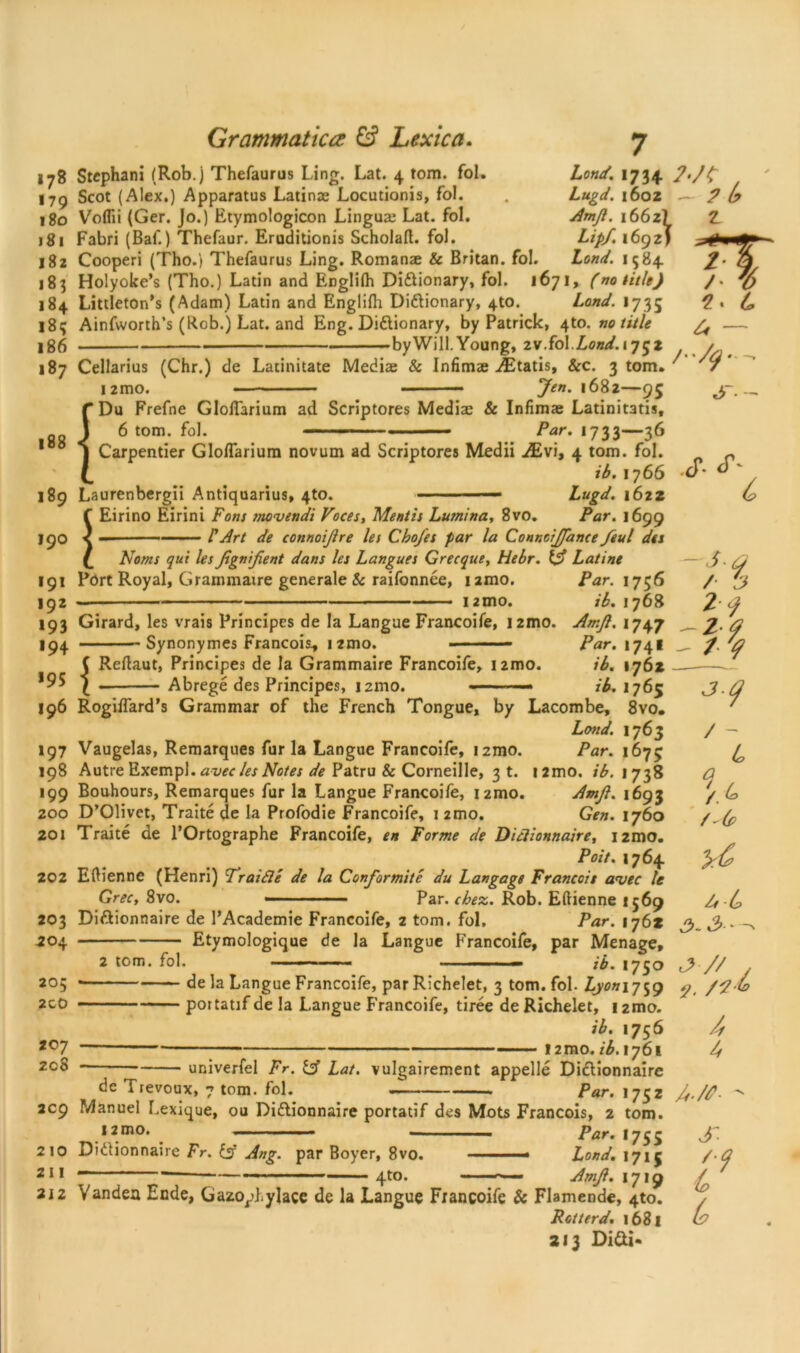 Grammaticæ & Lexica. 7
178 Stephani (Rob.) Thesaurus Ling. Lat. 4 tom. fol. Lond. 1734 2.15
179 Scot (Alex.) Apparatus Latinæ Locutionis, fol. . Lugd. 1602 — 2 6
180 Vossii (Ger. Jo.) Etymologicon Linguæ Lat. fol. Amst. 1662} 2
181 Fabri (Bas.) Thesaur. Eruditionis Scholast. fol. Lips. 1692}
182 Cooperi (Tho.) Thesaurus Ling. Romanæ & Britan. fol. Lond. 1584
183 Holyoke's (Tho.) Latin and English Dictionary, fol. 1671, (no title)
184 Littleton's (Adam) Latin and English Dictionary, 4to. Lond. 1735 2. 6
185 Ainsworth's (Rob.) Lat. and Eng. Dictionary, by Patrick, 4to. no title 4 —
186 ——— by Will. Young, 2v. fol. Lond. 1752
187 Cellarius (Chr.) de Latinitate Mediæ & Infimæ Ætatis, &c. 3 tom.
12mo. ——— ——— Jen. 1682—95 5. —
188 { Du Fresne Glossarium ad Scriptores Mediæ & Infimæ Latinitatis,
6 tom. fol. ——— Par. 1733—36
Carpentier Glossarium novum ad Scriptores Medii Ævi, 4 tom. fol.
ib. 1766
189 Laurenbergii Antiquarius, 4to. ——— Lugd. 1622 6
190 { Eirino Eirini Fons movendi Voces, Mentis Lumina, 8vo. Par. 1699
——— l'Art de connoistre les Choses par la Connoissance seul des
Noms qui les signifient dans les Langues Grecque, Hebr. & Latine
191 Pórt Royal, Grammaire generale & raisonnée, 12mo. Par. 1756
192 ——— 12mo. ib. 1768 2.9
193 Girard, les vrais Principes de la Langue Francoise, 12mo. Amst. 1747 — 2.9
194 ——— Synonymes Francois, 12mo. ——— Par. 1741 — 1.9
195 { Restaut, Principes de la Grammaire Francoise, 12mo. ib. 1762 —
——— Abregé des Principes, 12mo. ——— ib. 1765 3.9
196 Rogissard's Grammar of the French Tongue, by Lacombe, 8vo.
Lond. 1763 1 –
197 Vaugelas, Remarques sur la Langue Francoise, 12mo. Par. 1675 6
198 Autre Exempl. avec les Notes de Patru & Corneille, 3 t. 12mo. ib. 1738 9
199 Bouhours, Remarques sur la Langue Francoise, 12mo. Amst. 1693 1.6
200 D'Olivet, Traité de la Prosodie Francoise, 12mo. Gen. 1760 1-6
201 Traité de l'Ortographe Francoise, en Forme de Dictionnaire, 12mo.
Poit. 1764
202 Estienne (Henri) Traicté de la Conformité du Langage Francois avec le
Grec, 8vo. ——— Par. chez. Rob. Estienne 1569 4-6
203 Dictionnaire de l'Academie Francoise, 2 tom. fol. Par. 1762 3. 3. —
204 ——— Etymologique de la Langue Francoise, par Menage,
2 tom. fol. ——— ——— ib. 1750 3 //
205 ——— de la Langue Francoise, par Richelet, 3 tom. fol. Lyon 1759 2. 12.6
206 ——— portatif de la Langue Francoise, tirée de Richelet, 12mo.
ib. 1756 4
207 ——— 12mo. ib. 1761 4
208 ——— universel Fr. & Lat. vulgairement appellé Dictionnaire
de Trevoux, 7 tom. fol. ——— Par. 1752 4.10. -
209 Manuel Lexique, ou Dictionnaire portatif des Mots Francois, 2 tom.
12mo. ——— ——— Par. 1755 5.
210 Dictionnaire Fr. & Ang. par Boyer, 8vo. ——— Lond. 1715 1.9
211 ——— 4to. ——— Amst. 1719 6
212 Vanden Ende, Gazophylace de la Langue Francoise & Flamende, 4to.
Rotterd. 1681 6
213 Dicti-